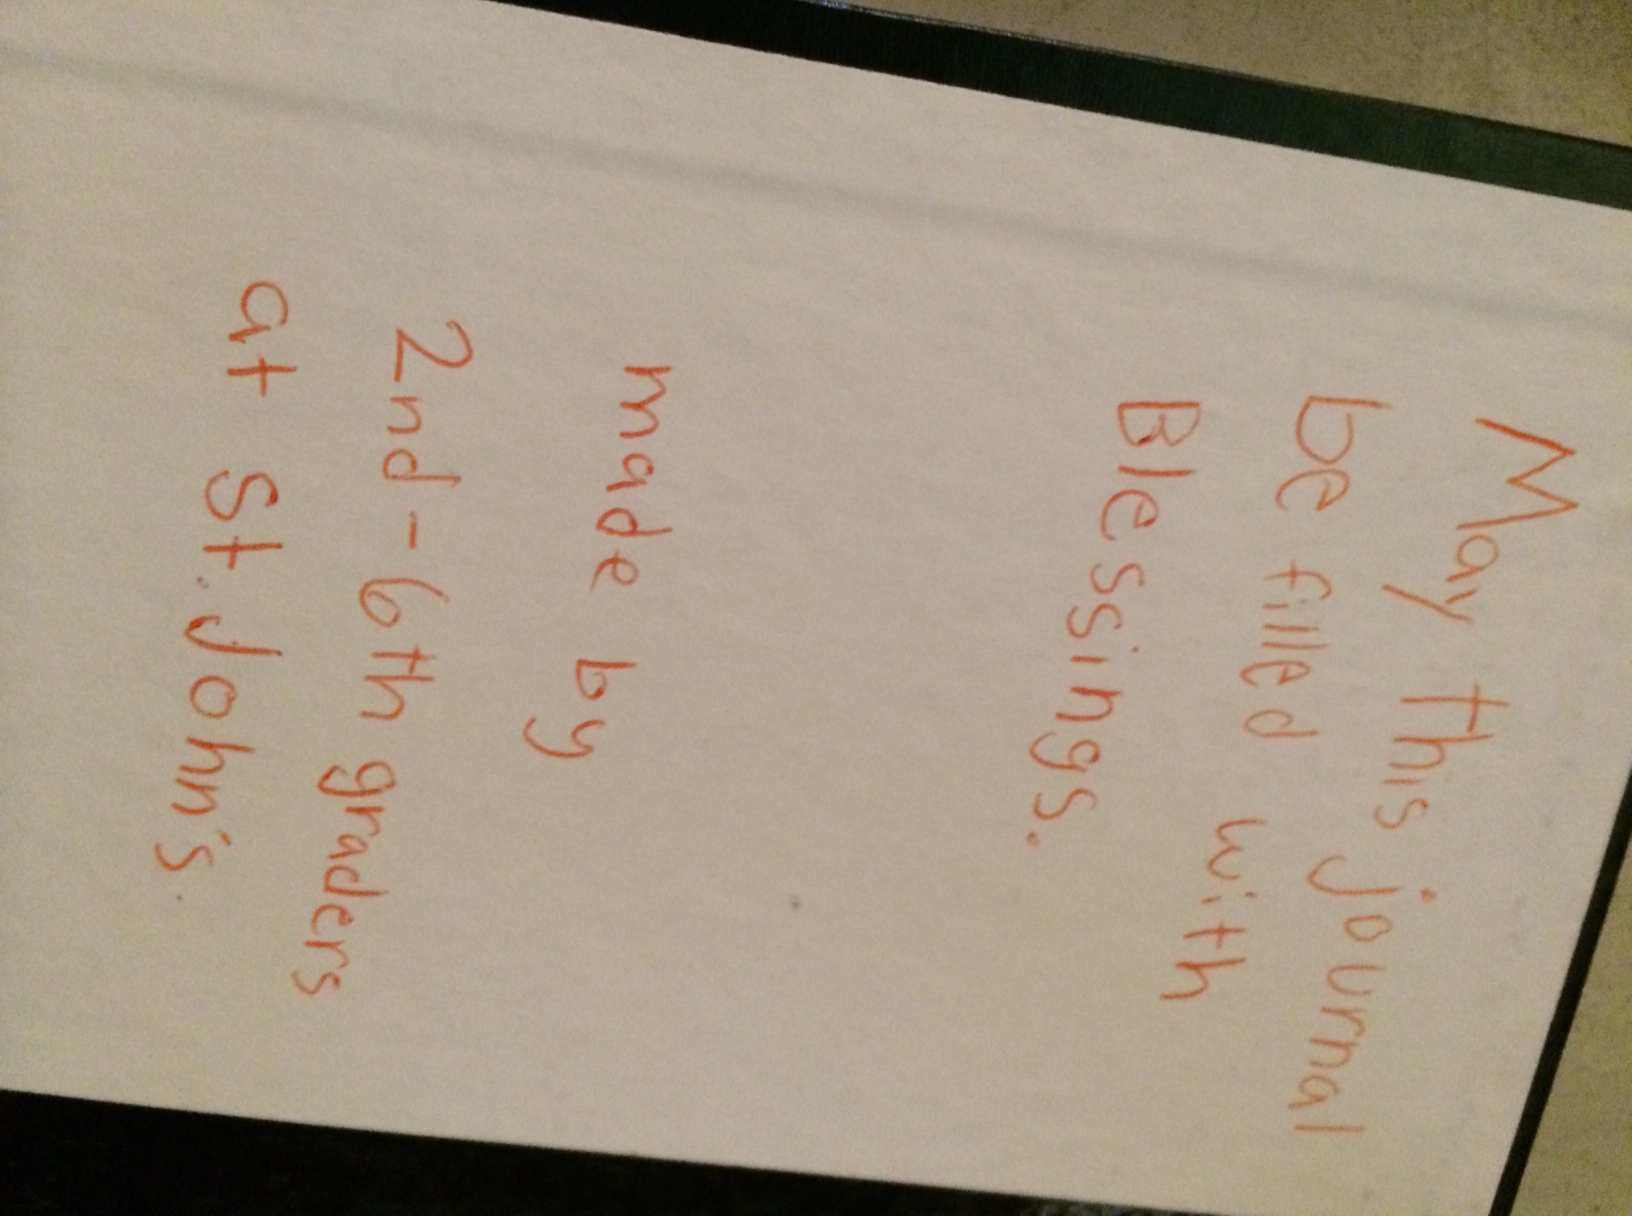 May this journal
be filled with
Blessings.
made by
2nd-6th graders
at St. John's.